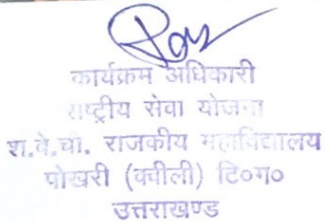 कार्यक्रम अधिकारी
राष्ट्रीय सेवा योजना
श.बे.चौ. राजकीय महाविद्यालय
पोखरी (क्वीली) टि०ग०
उत्तराखण्ड